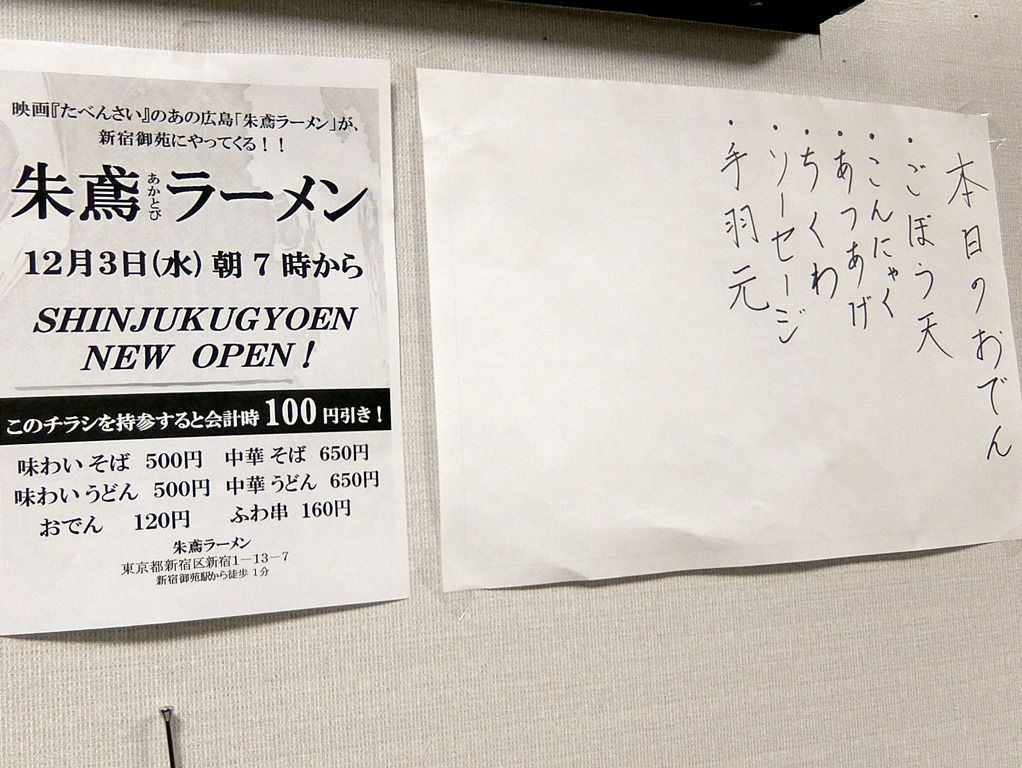 映画『たべんさい』のあの広島「朱鳶ラーメン」が、
新宿御苑にやってくる！！
朱鳶あかとびラーメン
12月3日(水) 朝 7 時から
SHINJUKUGYOEN
NEW OPEN！
このチラシを持参すると会計時 100 円引き！
味わいそば 500円 中華そば 650円
味わいうどん 500円 中華うどん 650円
おでん 120円 ふわ串 160円
朱鳶ラーメン
東京都新宿区新宿1－13－7
新宿御苑駅から徒歩 1分
本日のおでん
・ごぼう天
・こんにゃく
・あつあげ
・ちくわ
・ソーセージ
・手羽元